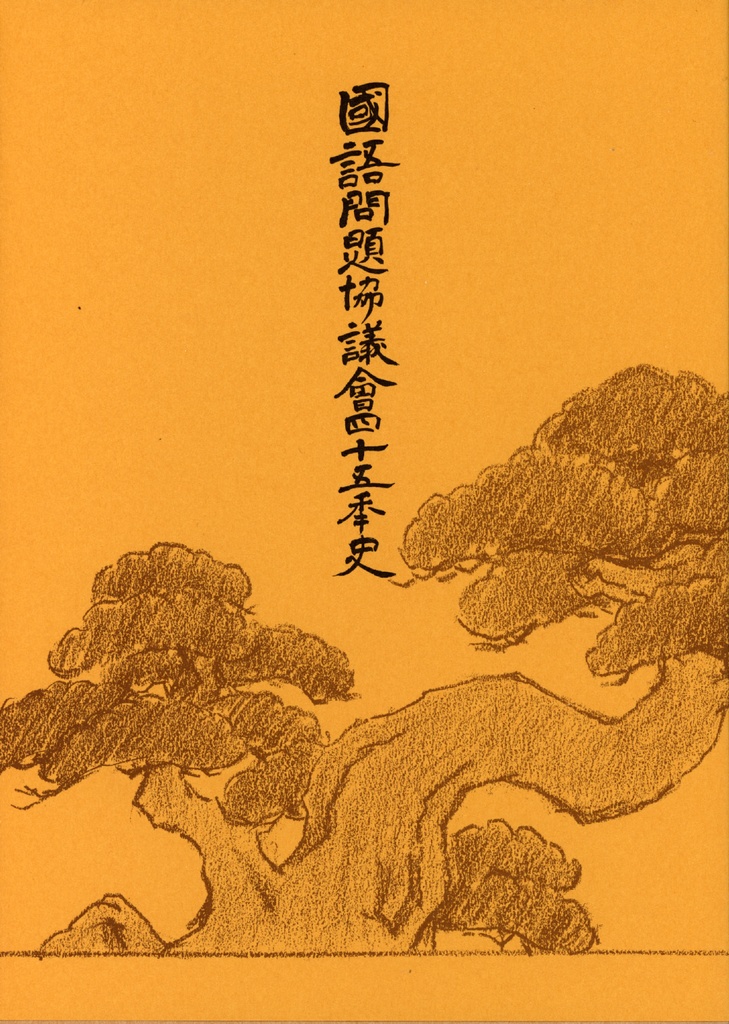 國語問題協議會四十五季史